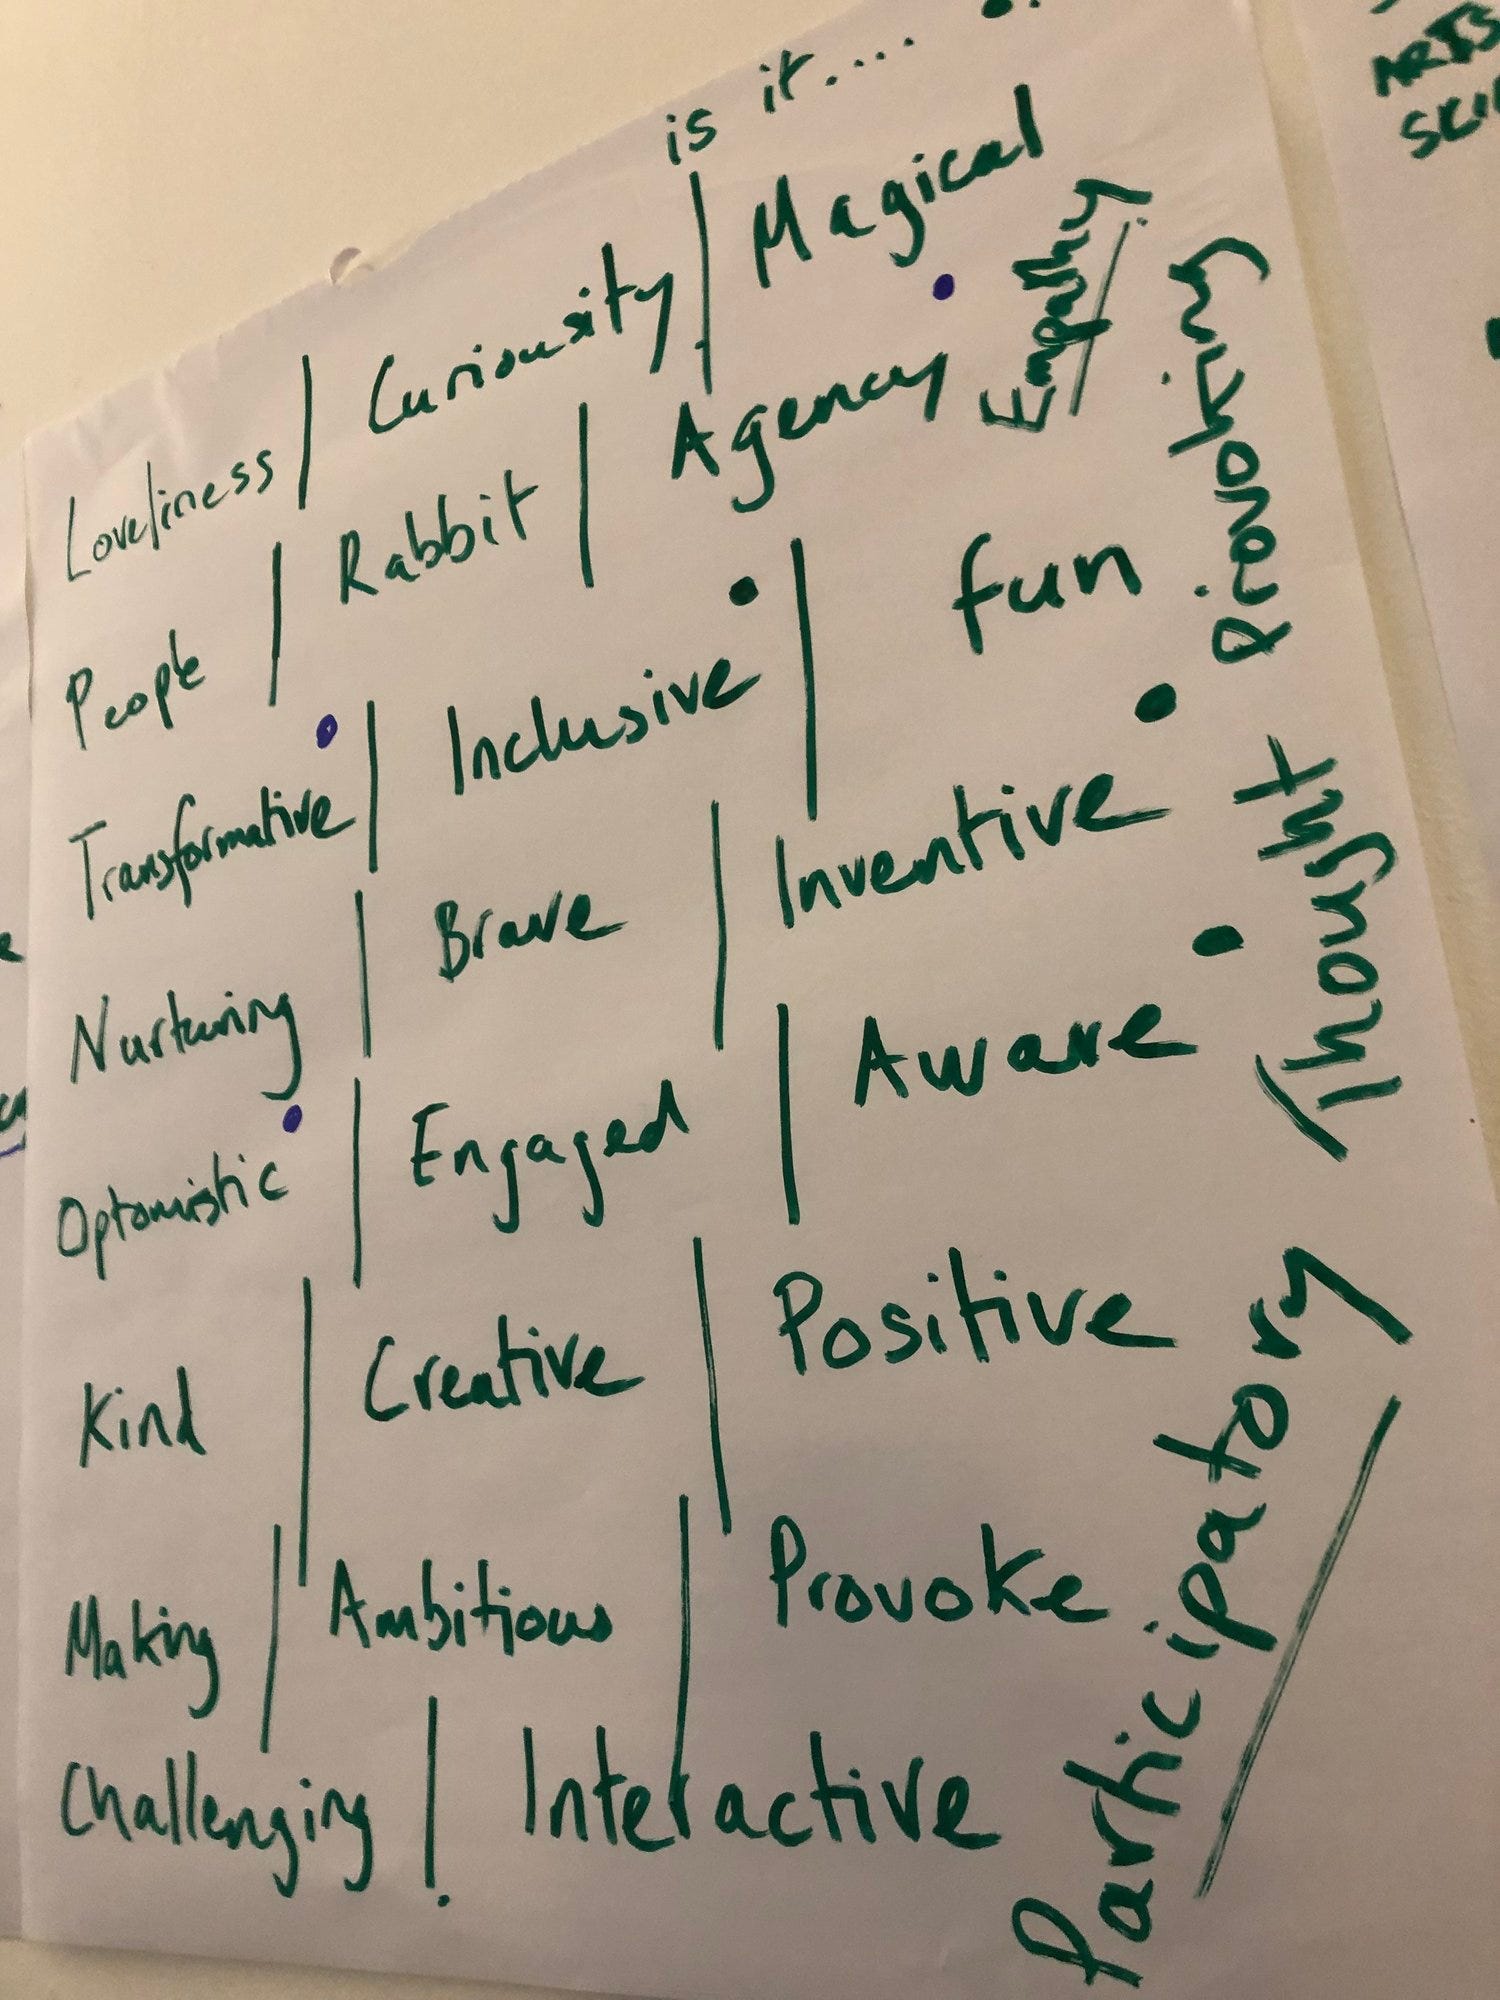 is it....
Loveliness | Curiousity | Magical
People | Rabbit | Agency
Empathy /
Transformative | Inclusive | fun
Nurturing | Brave | Inventive
Optomistic | Engaged | Aware
Kind | Creative | Positive
Making | Ambitious | Provoke
Challenging | Interactive
Participatory / Thought Provoking
ARTS